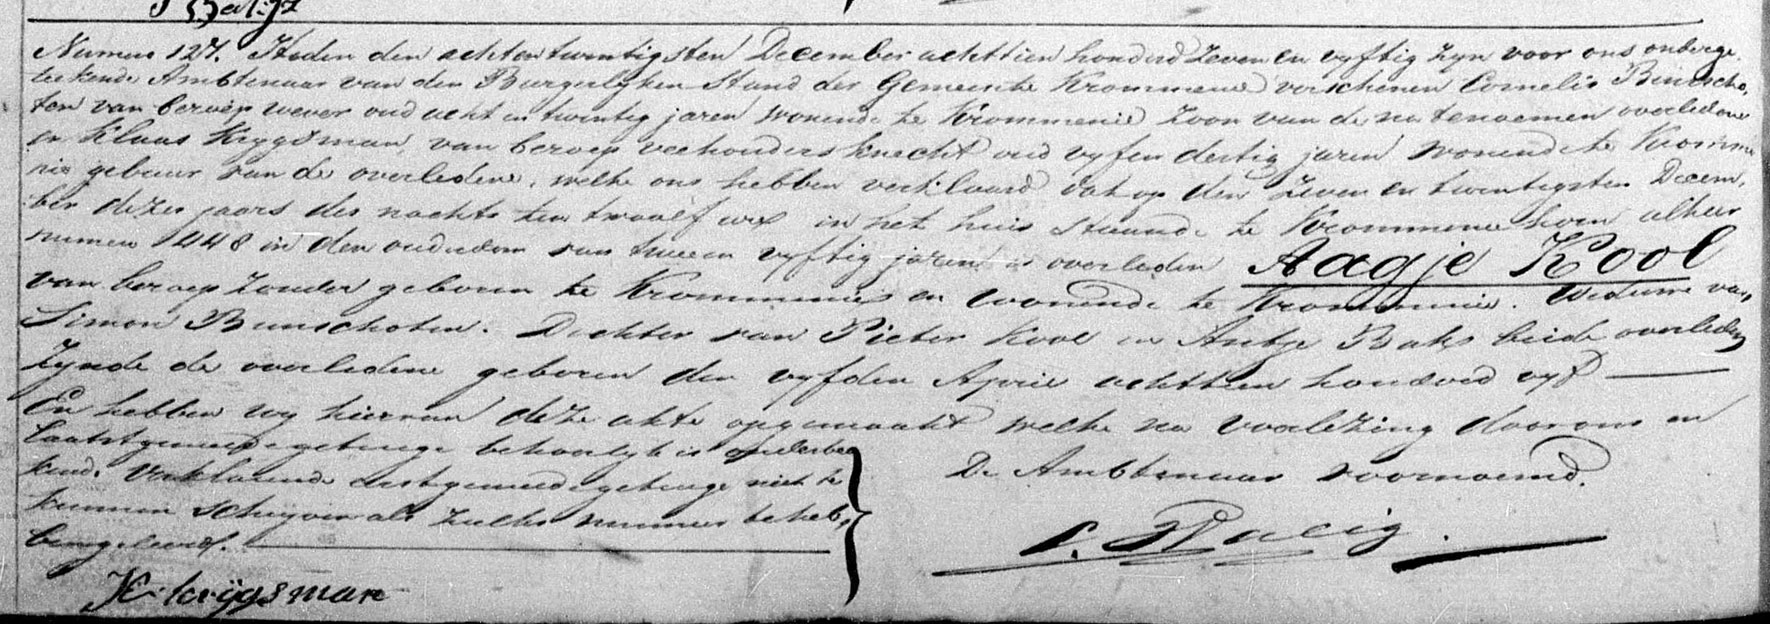 Numero 127. Heden den achtentwintigsten December achttien honderd zeven en vyftig zyn voor ons onderge
teekende Ambtenaar van den Burgerlyken Stand der Gemeente Krommenie verschenen Cornelis Bunscho,
ten van beroep wever oud acht en twintig jaren wonende te Krommenie zoon van de na tenoemen overledene
en Klaas Krygsman, van beroep veehoudersknecht oud vyfen dertig jaren wonende te Kromme
nie gebuur van de overledene, welke ons hebben verklaard dat op den zeven en twintigsten Decem,
ber dezes jaars des nachts ten twaalf ure in het huis staande te Krommenie hoorn alhier
numero 448 in den ouderdom van twee en vyftig jaren is overleden Aagje Kool
van beroep zonder geboren te Krommenie en wonende te Krommenie. Weduwe van
Simon Bunschoten. Dochter van Pieter Kool en Antje Baks beide overleden
zynde de overledene geboren den vyfden April achttien honderd vyf
En hebben wy hiervan deze akte opgemaakt welke na voorlezing door ons en
laatstgemelde getuige behoorlyk is onderteekend
kend. Verklarende eerstgemelde getuige niet te
kunnen schryven als zulks nimmer te heb,
ben geleerd.
De Ambtenaar voornoemd.
K. krijgsman